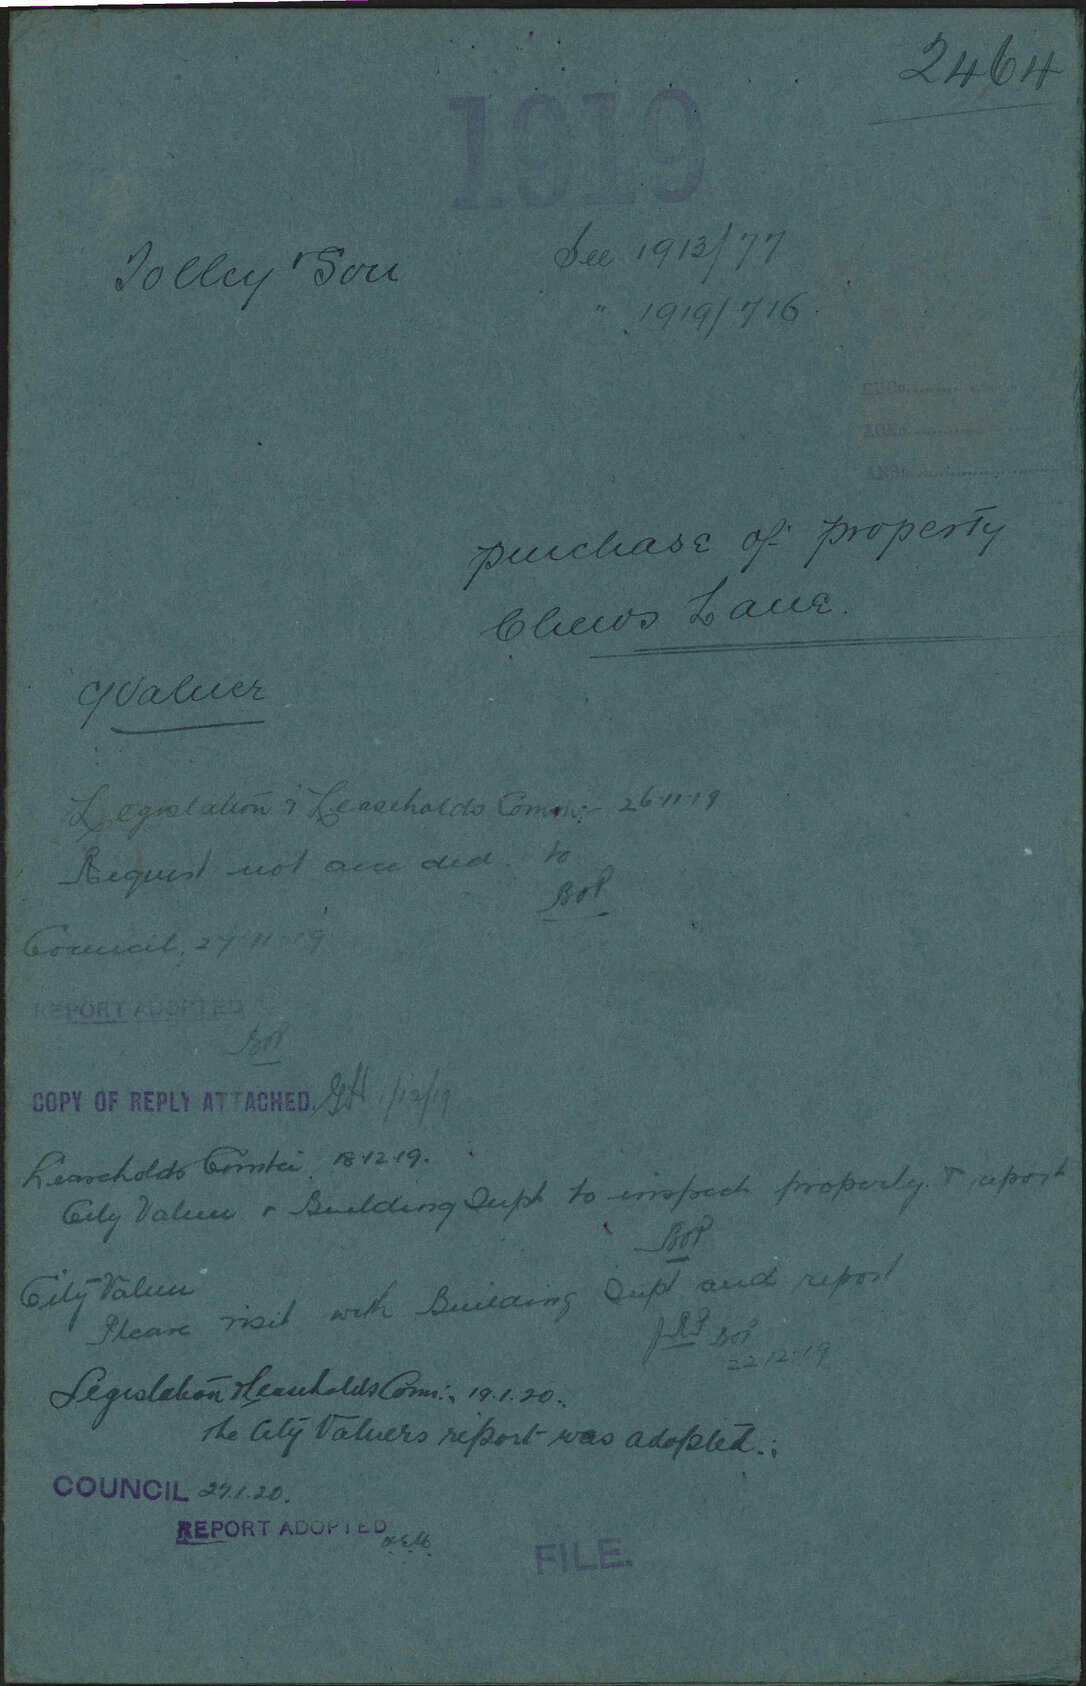 2464
1919
Tolley & Son
See 1913/77
" 1919/716.
purchase of property
Chews Lane.
Valuer
Legislation & Leaseholds Comm: 26.11.19
Request not acceded to
BoP
Council. 27.11.19
REPORT ADOPTED
BoP
COPY OF REPLY ATTACHED. 1/12/19
Leaseholds Comtee 18.12.19.
City Valuer & Building Dept to inspect property & report
BoP
City Valuer
Please visit with Building Dept and report
BoP
22.12.19
Legislation & Leaseholds Comm:. 19.1.20.
The City Valuers report was adopted.:
COUNCIL 27.1.20.
REPORT ADOPTED
FILE.